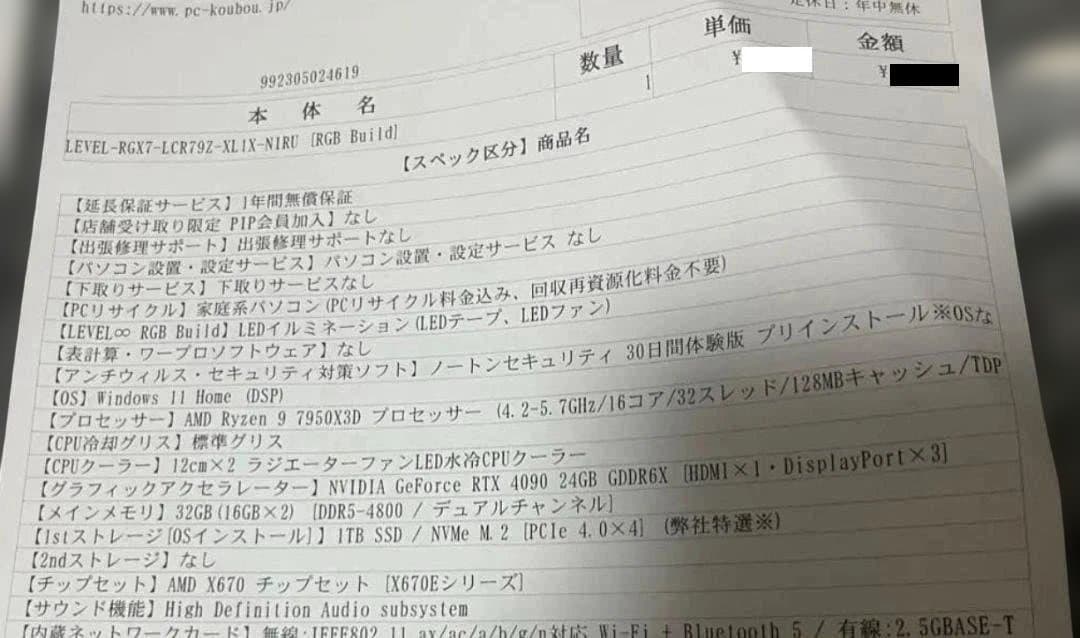 https://www.pc-koubou.jp/
定休日：年中無休
数量
単価
金額
992305024619
1
￥
￥
本体名
LEVEL-RGX7-LCR79Z-XL1X-NIRU [RGB Build]
【スペック区分】商品名
【延長保証サービス】1年間無償保証
【店舗受け取り限定 PIP会員加入】なし
【出張修理サポート】出張修理サポートなし
【パソコン設置・設定サービス】パソコン設置・設定サービス なし
【下取りサービス】下取りサービスなし
【PCリサイクル】家庭系パソコン(PCリサイクル料金込み、回収再資源化料金不要)
【LEVEL∞ RGB Build】LEDイルミネーション(LEDテープ、LEDファン)
【表計算・ワープロソフトウェア】なし
【アンチウィルス・セキュリティ対策ソフト】ノートンセキュリティ 30日間体験版 プリインストール※OSな
【OS】Windows 11 Home (DSP)
【プロセッサー】AMD Ryzen 9 7950X3D プロセッサー (4.2-5.7GHz/16コア/32スレッド/128MBキャッシュ/TDP
【CPU冷却グリス】標準グリス
【CPUクーラー】12cm×2 ラジエーターファンLED水冷CPUクーラー
【グラフィックアクセラレーター】NVIDIA GeForce RTX 4090 24GB GDDR6X [HDMI×1・DisplayPort×3]
【メインメモリ】32GB(16GB×2) [DDR5-4800 / デュアルチャンネル]
【1stストレージ[OSインストール]】1TB SSD / NVMe M.2 [PCIe 4.0×4] (弊社特選※)
【2ndストレージ】なし
【チップセット】AMD X670 チップセット [X670Eシリーズ]
【サウンド機能】High Definition Audio subsystem
【内蔵ネットワークカード】無線:IEEE802.11 ax/ac/a/b/g/n対応 Wi-Fi + Bluetooth 5 / 有線:2.5GBASE-T